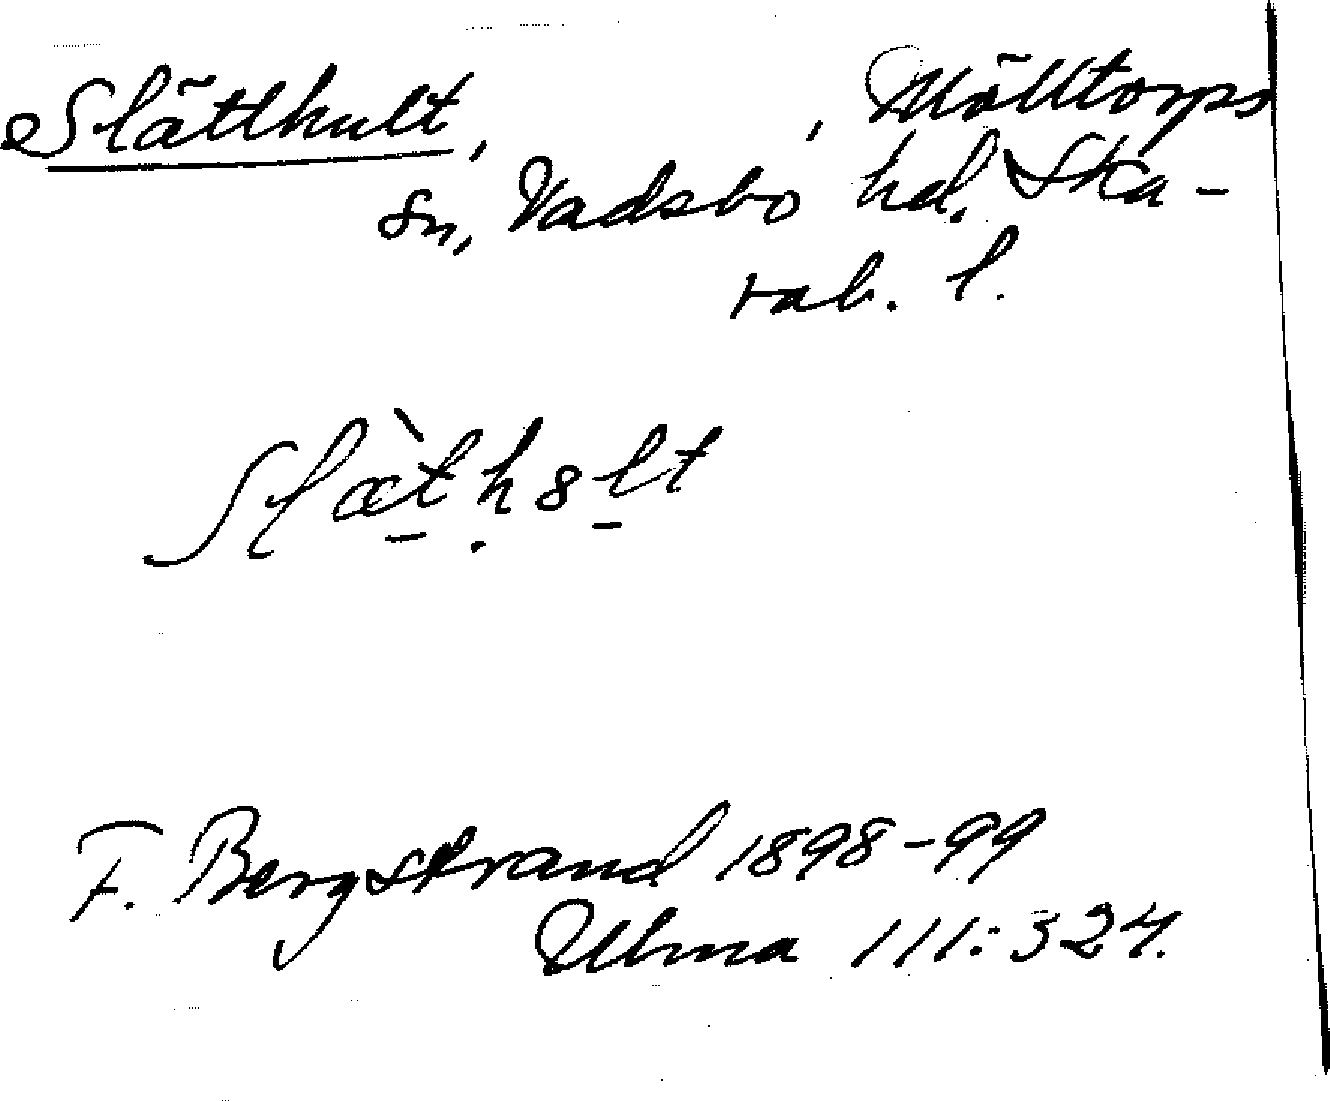 Slätthult, , Mölltorps
sn, Vadsbo hd. Ska-
rab. l.
Slæ̀t̠ḥ8l̠t
F. Bergstrand 1898-99
Ulma 111:324.